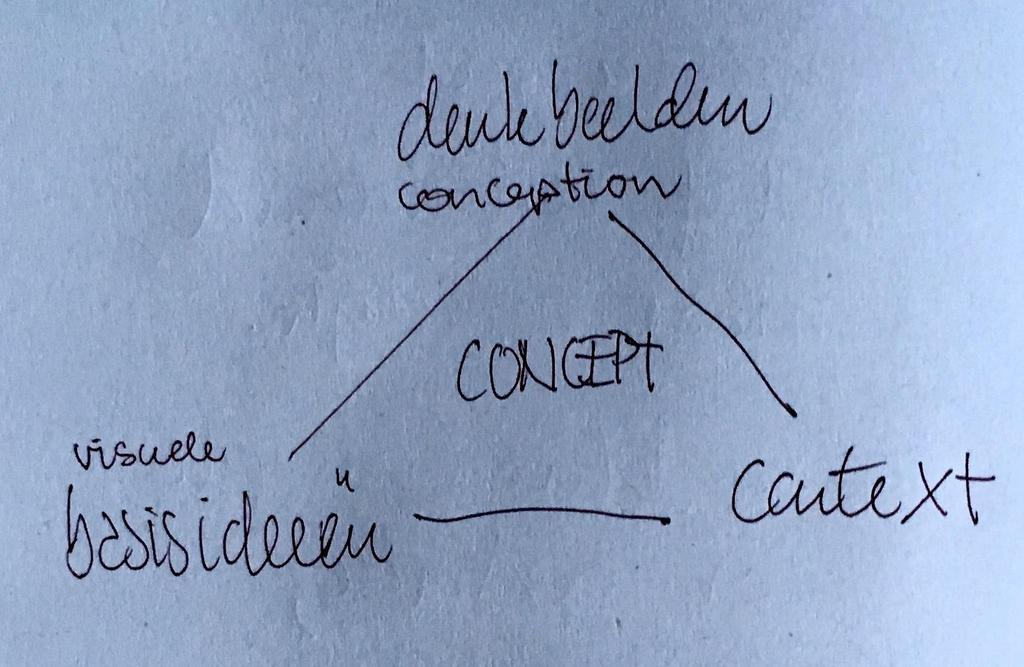 denkbeelden
conception
CONCEPT
visuele
basisideeën
context